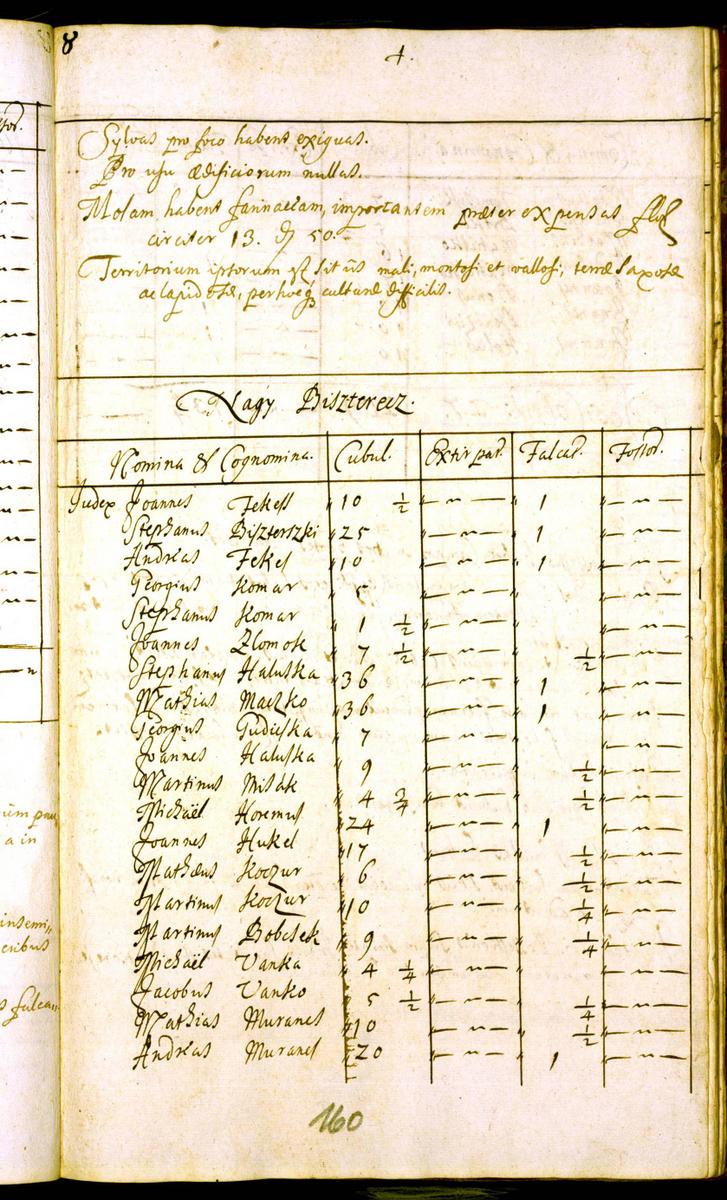 8
4.
Sylvas pro foco habent exiguas.
Pro usu ædificiorum nullas.
Molam habent farinaceam, importantem præter expensas
circiter 13. 50.
Territorium istorum est situs mali, montosi et vallosi, terræ saxosæ
ac lapidosæ, per hocq3 culturæ difficilis.
Nagy Biszterecz.
Nomina & Cognomina. Cubul. Extirpat. Falcat. Fossor.
Judex Joannes Fekess 10 ½ 1
Stephanus Biszterszki 25 1
Andreas Fekes 10 1
Georgius Komar 5
Stephanus Komar 1 ½
Joannes Zlomok 7 ½ ½
Stephanus Haluska 36 1
Mathias Maczko 36 1
Georgius Gudieska 7
Joannes Haluska 9 ½
Martinus Misák 4 ¾ ½
Michaël Horemus 24 1
Joannes Hukel 17 ½
Mathæus Koczur 6 ½
Martinus Koczur 10 ¼
Martinus Bobcsek 9 ¼
Michaël Vanka 4 ¼
Jacobus Vanko 5 ½ ¼
Mathias Murances 10 ½
Andreas Murances 20 1
160